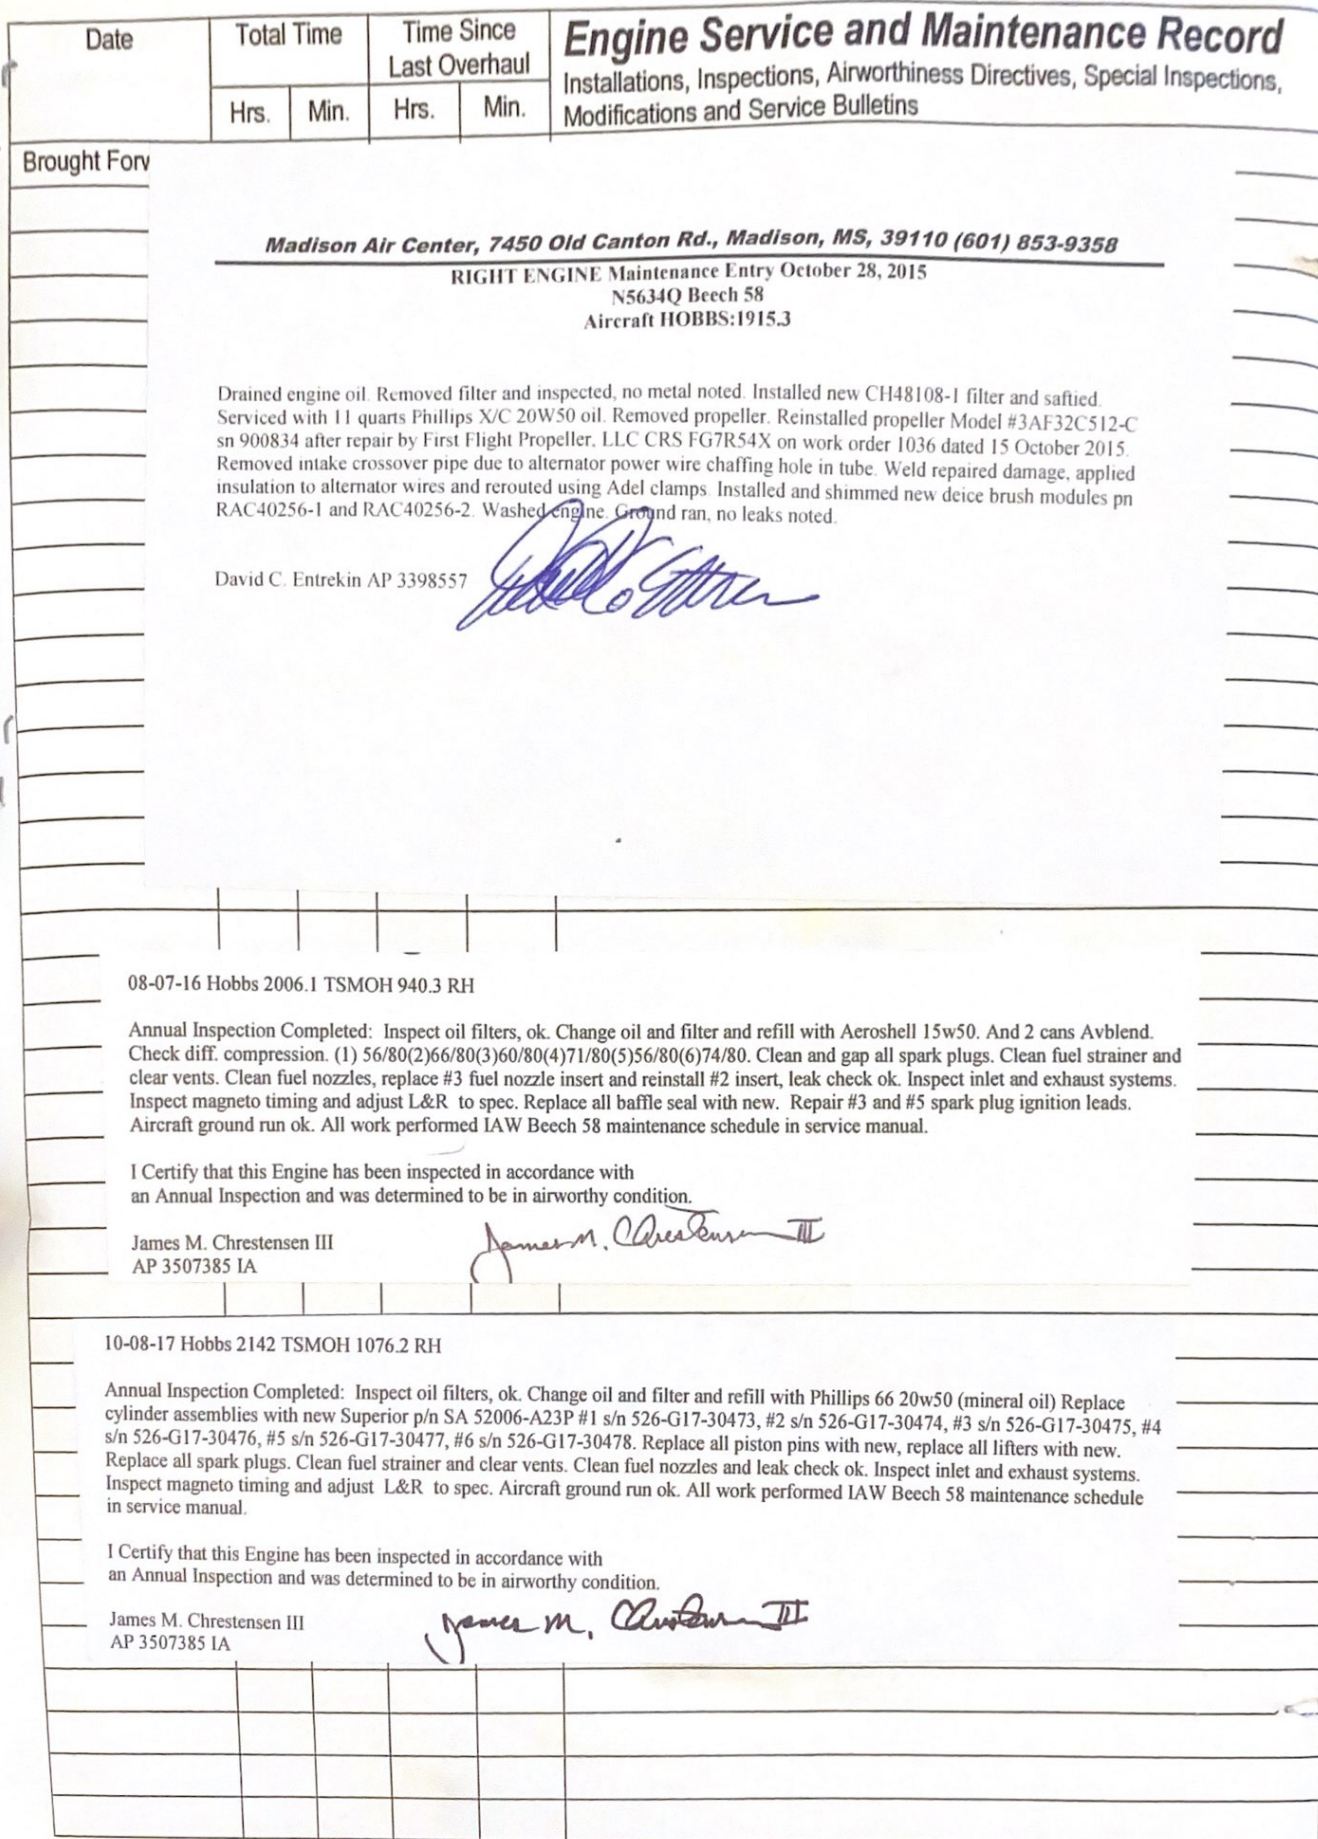 Date
Total Time
Time Since
Last Overhaul
Hrs. Min. Hrs. Min.
Engine Service and Maintenance Record
Installations, Inspections, Airworthiness Directives, Special Inspections,
Modifications and Service Bulletins
Brought Forv
Madison Air Center, 7450 Old Canton Rd., Madison, MS, 39110 (601) 853-9358
RIGHT ENGINE Maintenance Entry October 28, 2015
N5634Q Beech 58
Aircraft HOBBS:1915.3
Drained engine oil. Removed filter and inspected, no metal noted. Installed new CH48108-1 filter and saftied.
Serviced with 11 quarts Phillips X/C 20W50 oil. Removed propeller. Reinstalled propeller Model #3AF32C512-C
sn 900834 after repair by First Flight Propeller, LLC CRS FG7R54X on work order 1036 dated 15 October 2015.
Removed intake crossover pipe due to alternator power wire chaffing hole in tube. Weld repaired damage, applied
insulation to alternator wires and rerouted using Adel clamps. Installed and shimmed new deice brush modules pn
RAC40256-1 and RAC40256-2. Washed engine. Ground ran, no leaks noted.
David C. Entrekin AP 3398557
08-07-16 Hobbs 2006.1 TSMOH 940.3 RH
Annual Inspection Completed: Inspect oil filters, ok. Change oil and filter and refill with Aeroshell 15w50. And 2 cans Avblend.
Check diff. compression. (1) 56/80(2)66/80(3)60/80(4)71/80(5)56/80(6)74/80. Clean and gap all spark plugs. Clean fuel strainer and
clear vents. Clean fuel nozzles, replace #3 fuel nozzle insert and reinstall #2 insert, leak check ok. Inspect inlet and exhaust systems.
Inspect magneto timing and adjust L&R to spec. Replace all baffle seal with new. Repair #3 and #5 spark plug ignition leads.
Aircraft ground run ok. All work performed IAW Beech 58 maintenance schedule in service manual.
I Certify that this Engine has been inspected in accordance with
an Annual Inspection and was determined to be in airworthy condition.
James M. Chrestensen III
James M. Chrestensen III
AP 3507385 IA
10-08-17 Hobbs 2142 TSMOH 1076.2 RH
Annual Inspection Completed: Inspect oil filters, ok. Change oil and filter and refill with Phillips 66 20w50 (mineral oil) Replace
cylinder assemblies with new Superior p/n SA 52006-A23P #1 s/n 526-G17-30473, #2 s/n 526-G17-30474, #3 s/n 526-G17-30475, #4
s/n 526-G17-30476, #5 s/n 526-G17-30477, #6 s/n 526-G17-30478. Replace all piston pins with new, replace all lifters with new.
Replace all spark plugs. Clean fuel strainer and clear vents. Clean fuel nozzles and leak check ok. Inspect inlet and exhaust systems.
Inspect magneto timing and adjust L&R to spec. Aircraft ground run ok. All work performed IAW Beech 58 maintenance schedule
in service manual.
I Certify that this Engine has been inspected in accordance with
an Annual Inspection and was determined to be in airworthy condition.
James M. Chrestensen III
James M. Chrestensen III
AP 3507385 IA